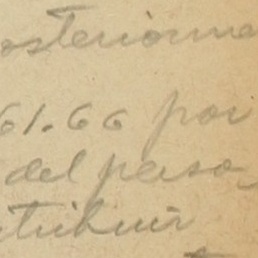 osteriorme
61.66 por
del perso
tribuir